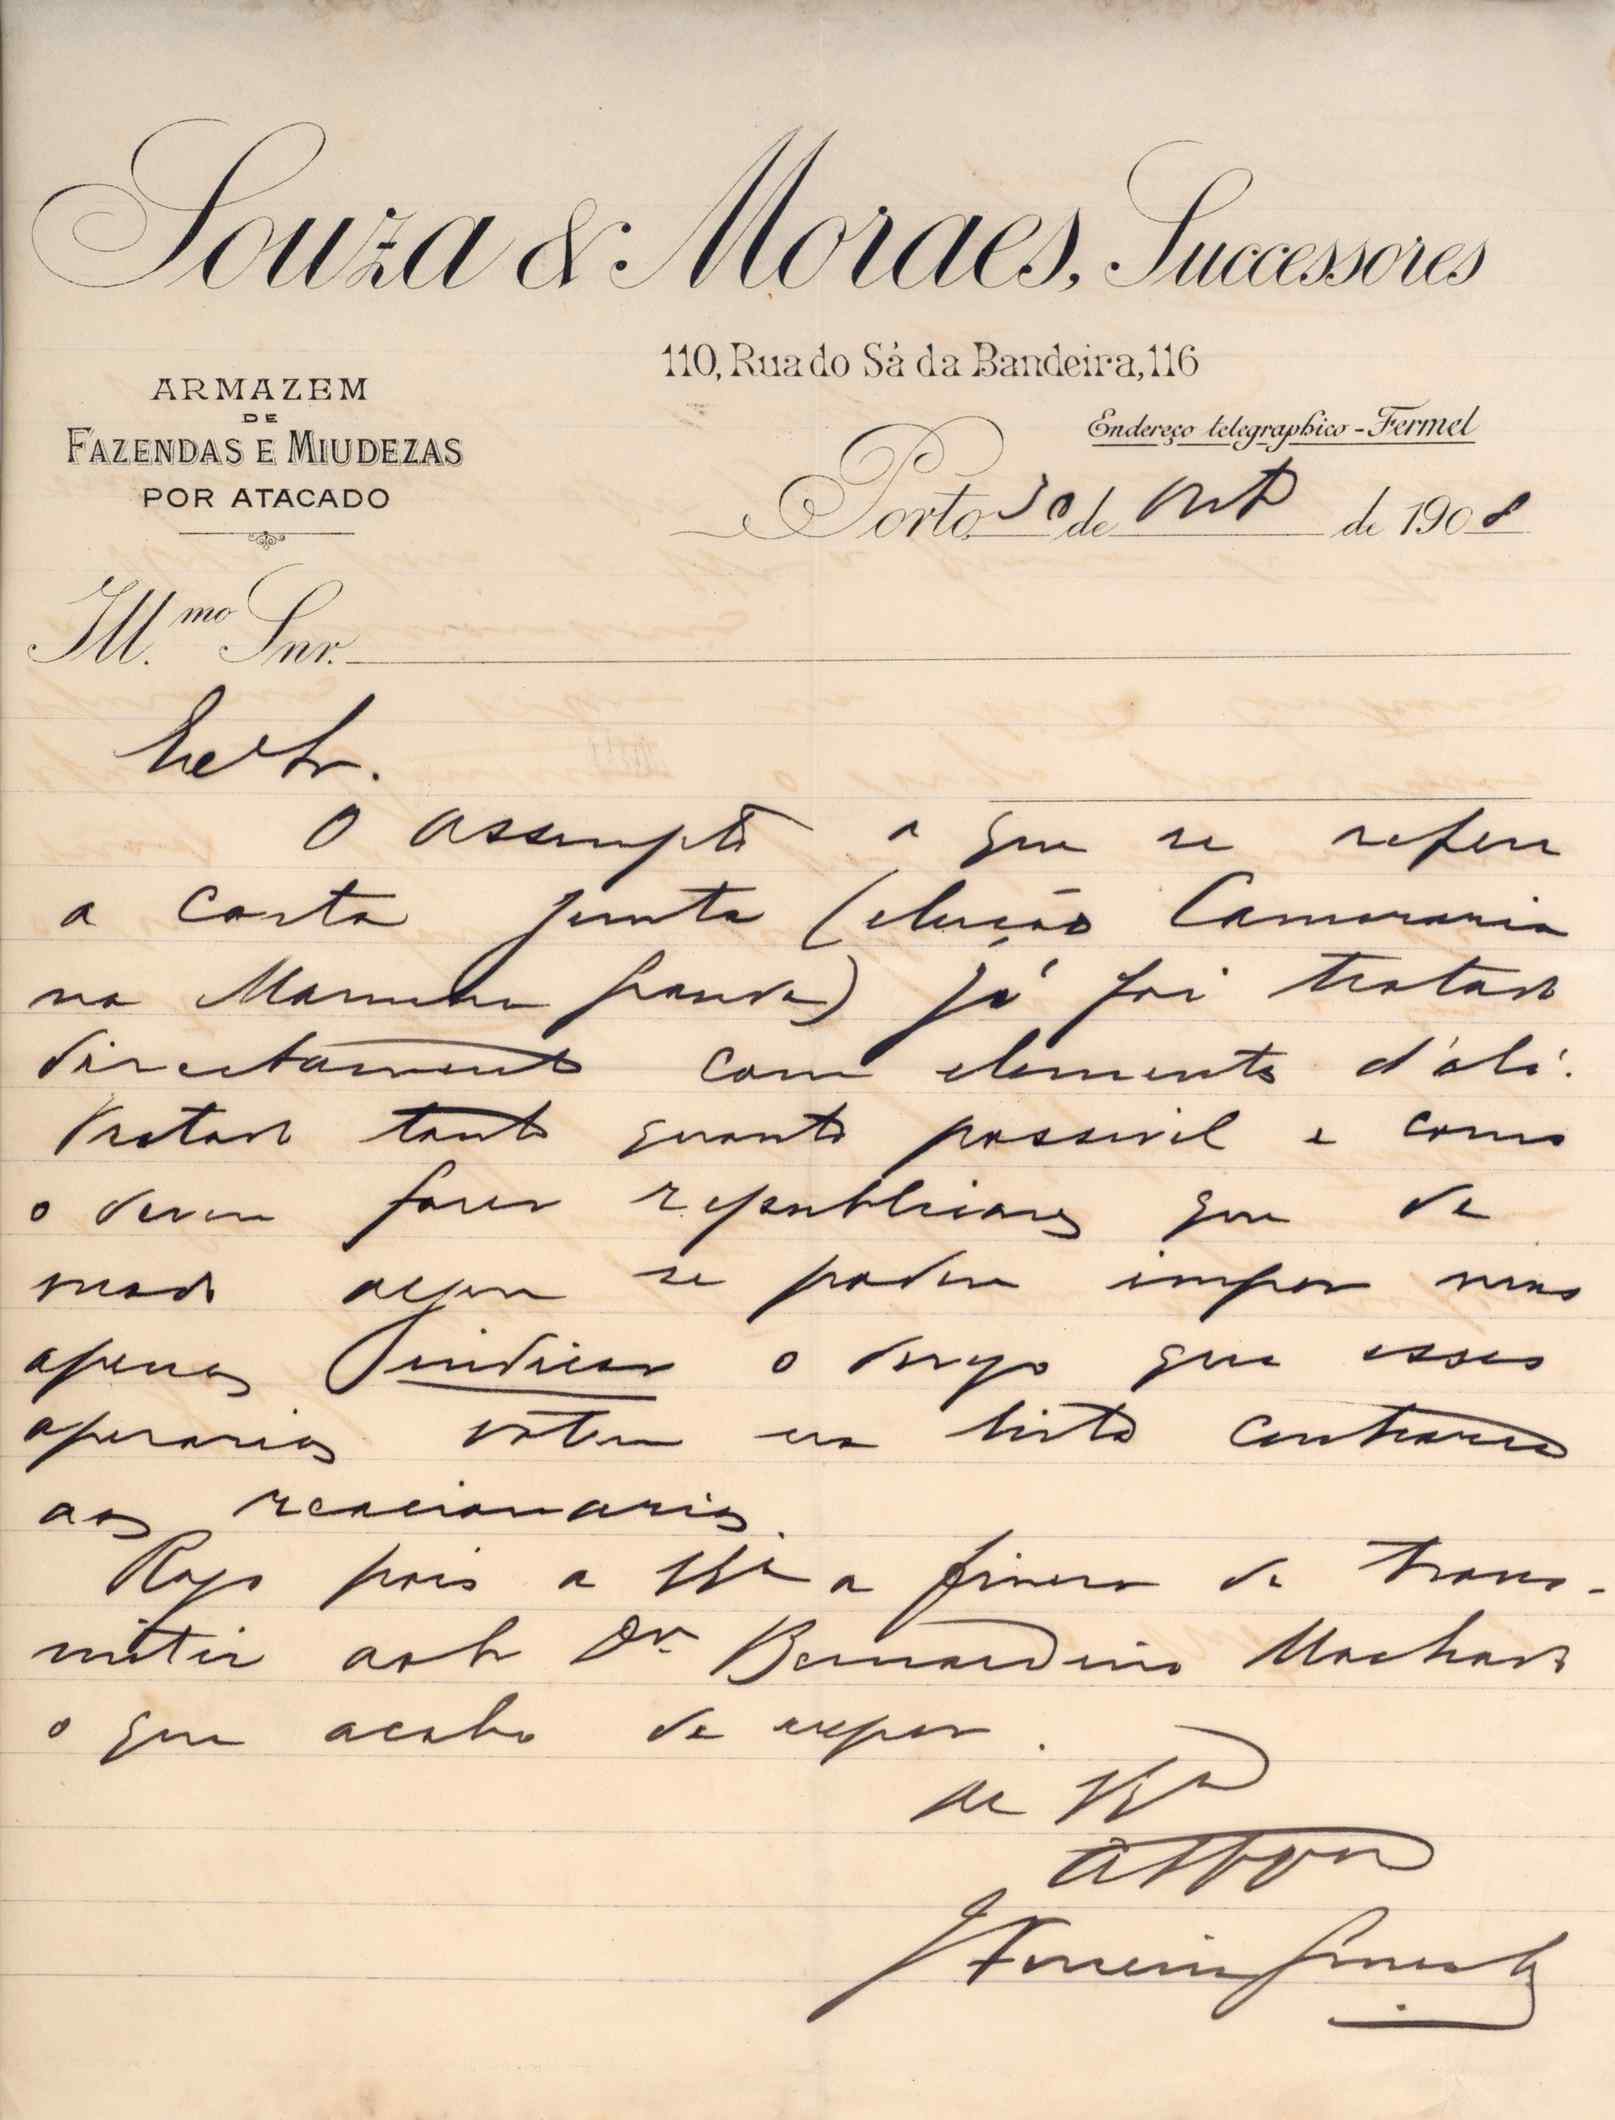 Souza & Moraes, Successores
110, Rua do Sá da Bandeira, 116
ARMAZEM
DE
FAZENDAS E MIUDEZAS
POR ATACADO
Endereço telegraphico - Fermel
Porto 30 de Outo de 1908
Ill.mo Snr.
O assumpto a que se refere
a carta junta (eleição Camararia
na Marinha Grande) já foi tratado
directamente com elementos d'ali.
Tratado tanto quanto possivel e como
o devem fazer republicanos que de
modo algum se podem impor mas
apenas indicar o desejo que esses
operarios votem na lista contraria
aos reacionarios.
Rogo pois a VEx.a a fineza de trans-
mitir ao Sr Dr. Bernardino Machado
o que acabo de expor.
de VEx.a